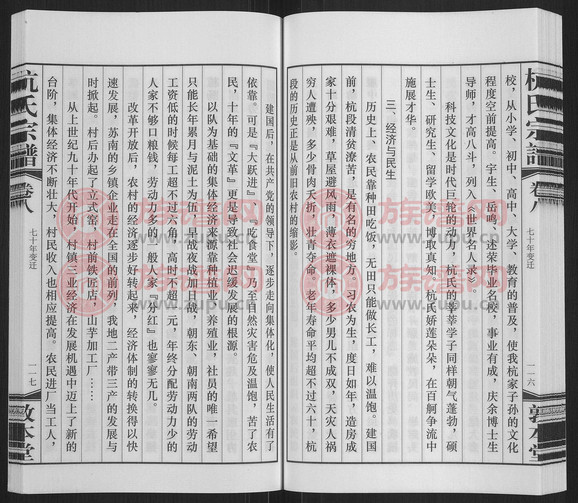 校，从小学、初中、高中、大学、教育的普及，使我杭家子孙的文化
程度空前提高。宇生、岳鸣、述荣毕业名校，事业有成，庆余博士生
导师，才高八斗，列入《世界名人录》。
科技文化是时代巨轮的动力，杭氏的莘莘学子同样朝气蓬勃，硕
士生、研究生、留学欧亚，博取真知，杭氏娇莲朵朵，在百舸争流中
施展才华。
三、经济与民生
历史上，农民靠种田吃饭，无田只能做长工，难以温饱。建国
前，杭段清贫潦苦，是有名的穷地方，习农为生，度日如年，造房成
家十分艰难，草屋避风雨，薄衣遮裸体，多少男儿不成双，天灾人祸
穷人遭殃，多少骨肉夭折，壮青寿命，老年寿命平均超不过六十，杭
段的历史正是从前旧农村的缩影。
杭氏宗谱
卷八
七十年变迁
一一六
敦本堂
建国后，在共产党的领导下，逐步走向集体化，使人民生活有了
依靠。可是『大跃进』、『吃食堂』乃至自然灾害危及温饱，苦了农
民，十年的『文革』更是导致社会迟缓发展的根源。
以队为基础的集体经济来源靠种植业、养殖业，社员的唯一希望
只能长年累月与泥土为伍，早战夜战加日战，朝东、朝南两队的劳动
工资低的时候每工超不过六角，高时不超一元，年终分配劳动力少的
人家不够口粮钱，劳动力多的，一般人家『分红』也寥寥无几。
改革开放后，农村的经济逐步好转起来，经济体制的转换得以快
速发展，苏南的乡镇企业走在全国的前列，我地二产带三产的发展与
时掀起。村后办起了立式窑，村前铁匠店，山芋加工厂……
从上世纪九十年代开始，村镇三业经济在发展机遇中迈上了新的
台阶，集体经济不断壮大，村民收入也相应提高。农民进厂当工人，
杭氏宗谱
卷八
七十年变迁
一一七
敦本堂
族谱网
zupu.cn